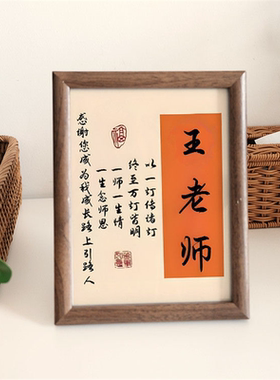 王老师
以一灯传诸灯
终至万灯皆明
一师一生情
一生念师恩
感谢您成为我成长路上引路人
福